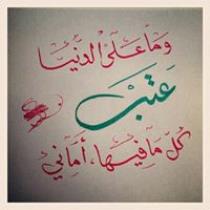 وَمَا عَلَى الدُّنْيَا
عَتَبْ
كُلّ مَا فِيهَا، أَمَانِي